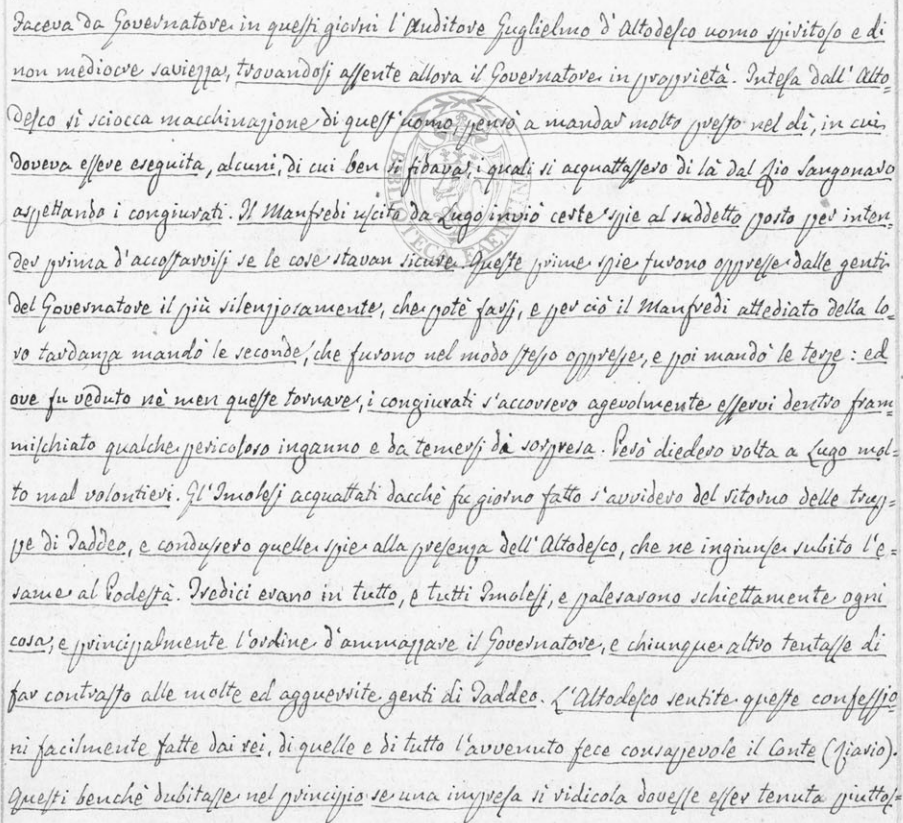 Faceva da Governatore in questi giorni l'Auditore Guglielmo d'Altodesco uomo spiritoso e di
non mediocre saviezza, trovandosi assente allora il Governatore in proprietà. Intesa dall'Alto=
desco sì sciocca macchinazione di quest'uomo, pensò a mandar molto presto nel dì, in cui
doveva essere eseguita, alcuni, di cui ben si fidava, i quali si acquattassero di là dal Rio Sanguinario
aspettando i congiurati. Il Manfredi uscito da Lugo inviò certe spie al suddetto posto per inten=
der prima d'accostarvisi se le cose stavan sicure. Queste prime spie furono oppresse dalle genti
del Governatore il più silenziosamente, che potè farsi, e per ciò il Manfredi attediato della lo=
ro tardanza mandò le seconde, che furono nel modo stesso oppresse, e poi mandò le terze: ed
ove fu veduto nè men queste tornare, i congiurati s'accorsero agevolmente esservi dentro fram=
mischiato qualche pericoloso inganno e da temersi di sorpresa. Però diedero volta a Lugo mol=
to mal volontieri. Gl'Imolesi acquattati dacchè fu giorno fatto s'avvidero del ritorno delle trup=
pe di Taddeo, e condussero quelle spie alla presenza dell'Altodesco, che ne ingiunse subito l'e=
same al Podestà. Tredici erano in tutto, e tutti Imolesi, e palesarono schiettamente ogni
cosa, e principalmente l'ordine d'ammazzare il Governatore, e chiunque altro tentasse di
far contrasto alle molte ed agguerrite genti di Taddeo. L'Altodesco sentite queste confessio=
ni facilmente fatte dai rei, di quelle e di tutto l'avvenuto fece consapevole il Conte (Riario).
Questi benchè dubitasse nel principio se una impresa sì ridicola dovesse esser tenuta piuttos=